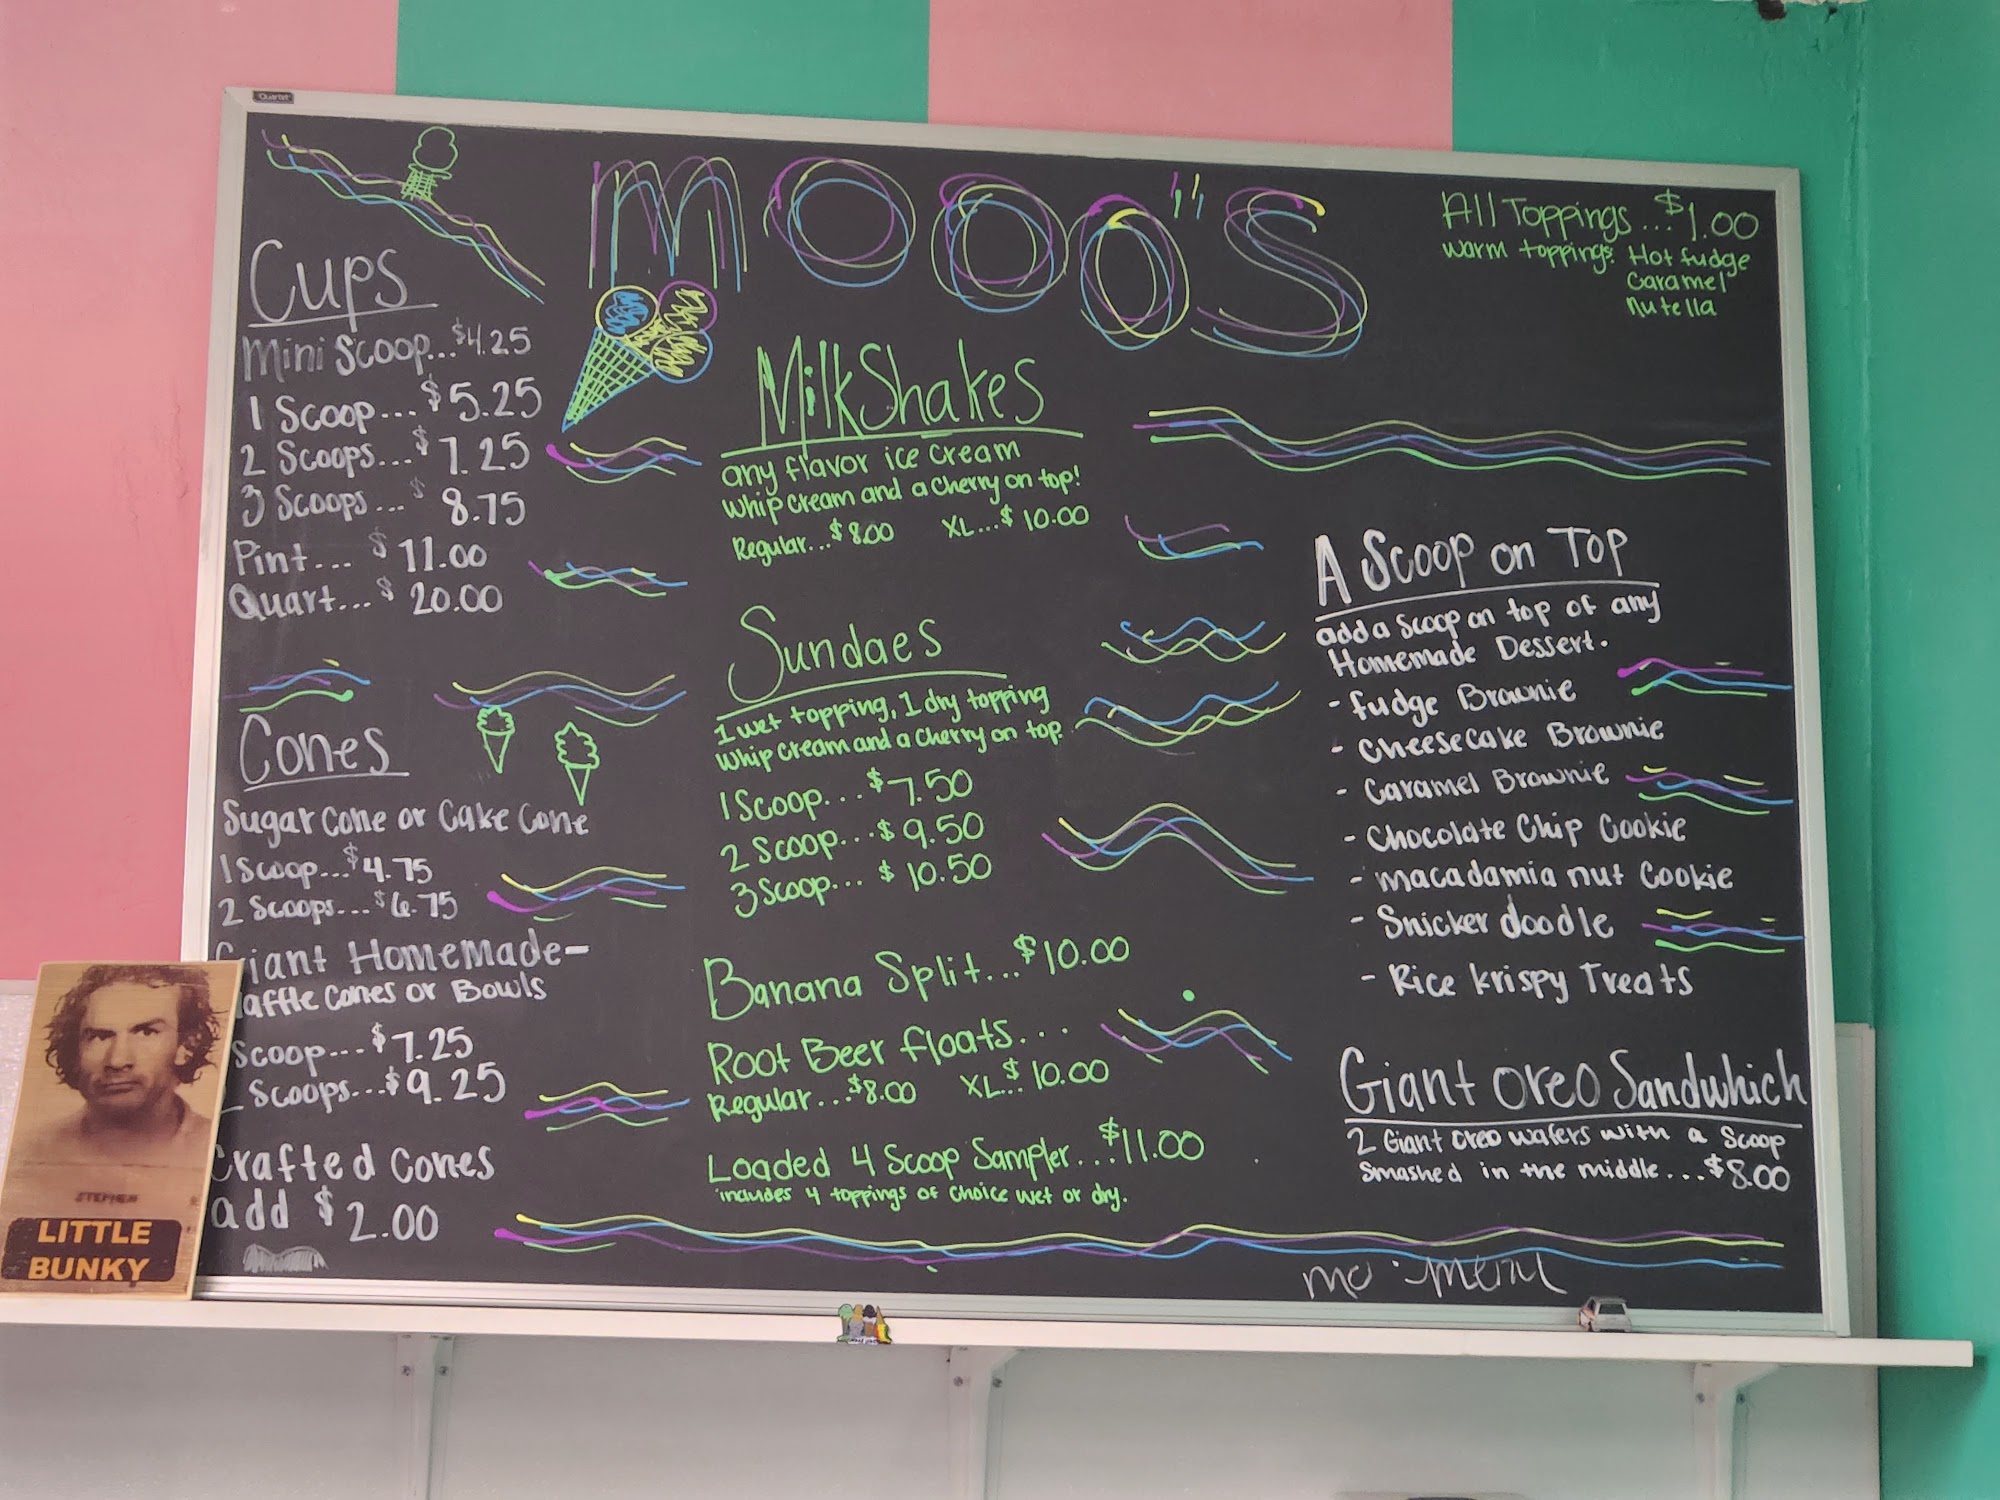 Quartet
MOOO'S
All Toppings...$1.00
warm toppings: Hot fudge
Caramel
Nutella
Cups
Mini Scoop...$4.25
1 Scoop...$5.25
2 Scoops...$7.25
3 Scoops...$8.75
Pint...$11.00
Quart...$20.00
Cones
Sugar Cone or Cake Cone
1 Scoop...$4.75
2 Scoops...$6.75
Giant Homemade-
affle Cones or Bowls
Scoop...$7.25
Scoops...$9.25
Crafted Cones
add $2.00
MilkShakes
any flavor ice cream
whip cream and a cherry on top!
Regular...$8.00 XL...$10.00
Sundaes
1 wet topping, 1 dry topping
whip cream and a cherry on top
1 Scoop...$7.50
2 Scoop...$9.50
3 Scoop...$10.50
Banana Split...$10.00
Root Beer floats...
Regular...$8.00 XL..$10.00
Loaded 4 Scoop Sampler...$11.00
includes 4 toppings of choice wet or dry.
A Scoop on Top
add a scoop on top of any
Homemade Dessert.
- fudge Brownie
- Cheesecake Brownie
- Caramel Brownie
- Chocolate Chip Cookie
- macadamia nut Cookie
- Snicker doodle
- Rice Krispy Treats
Giant Oreo Sandwhich
2 Giant oreo wafers with a scoop
smashed in the middle...$8.00
menu
STEPHEN
LITTLE
BUNKY